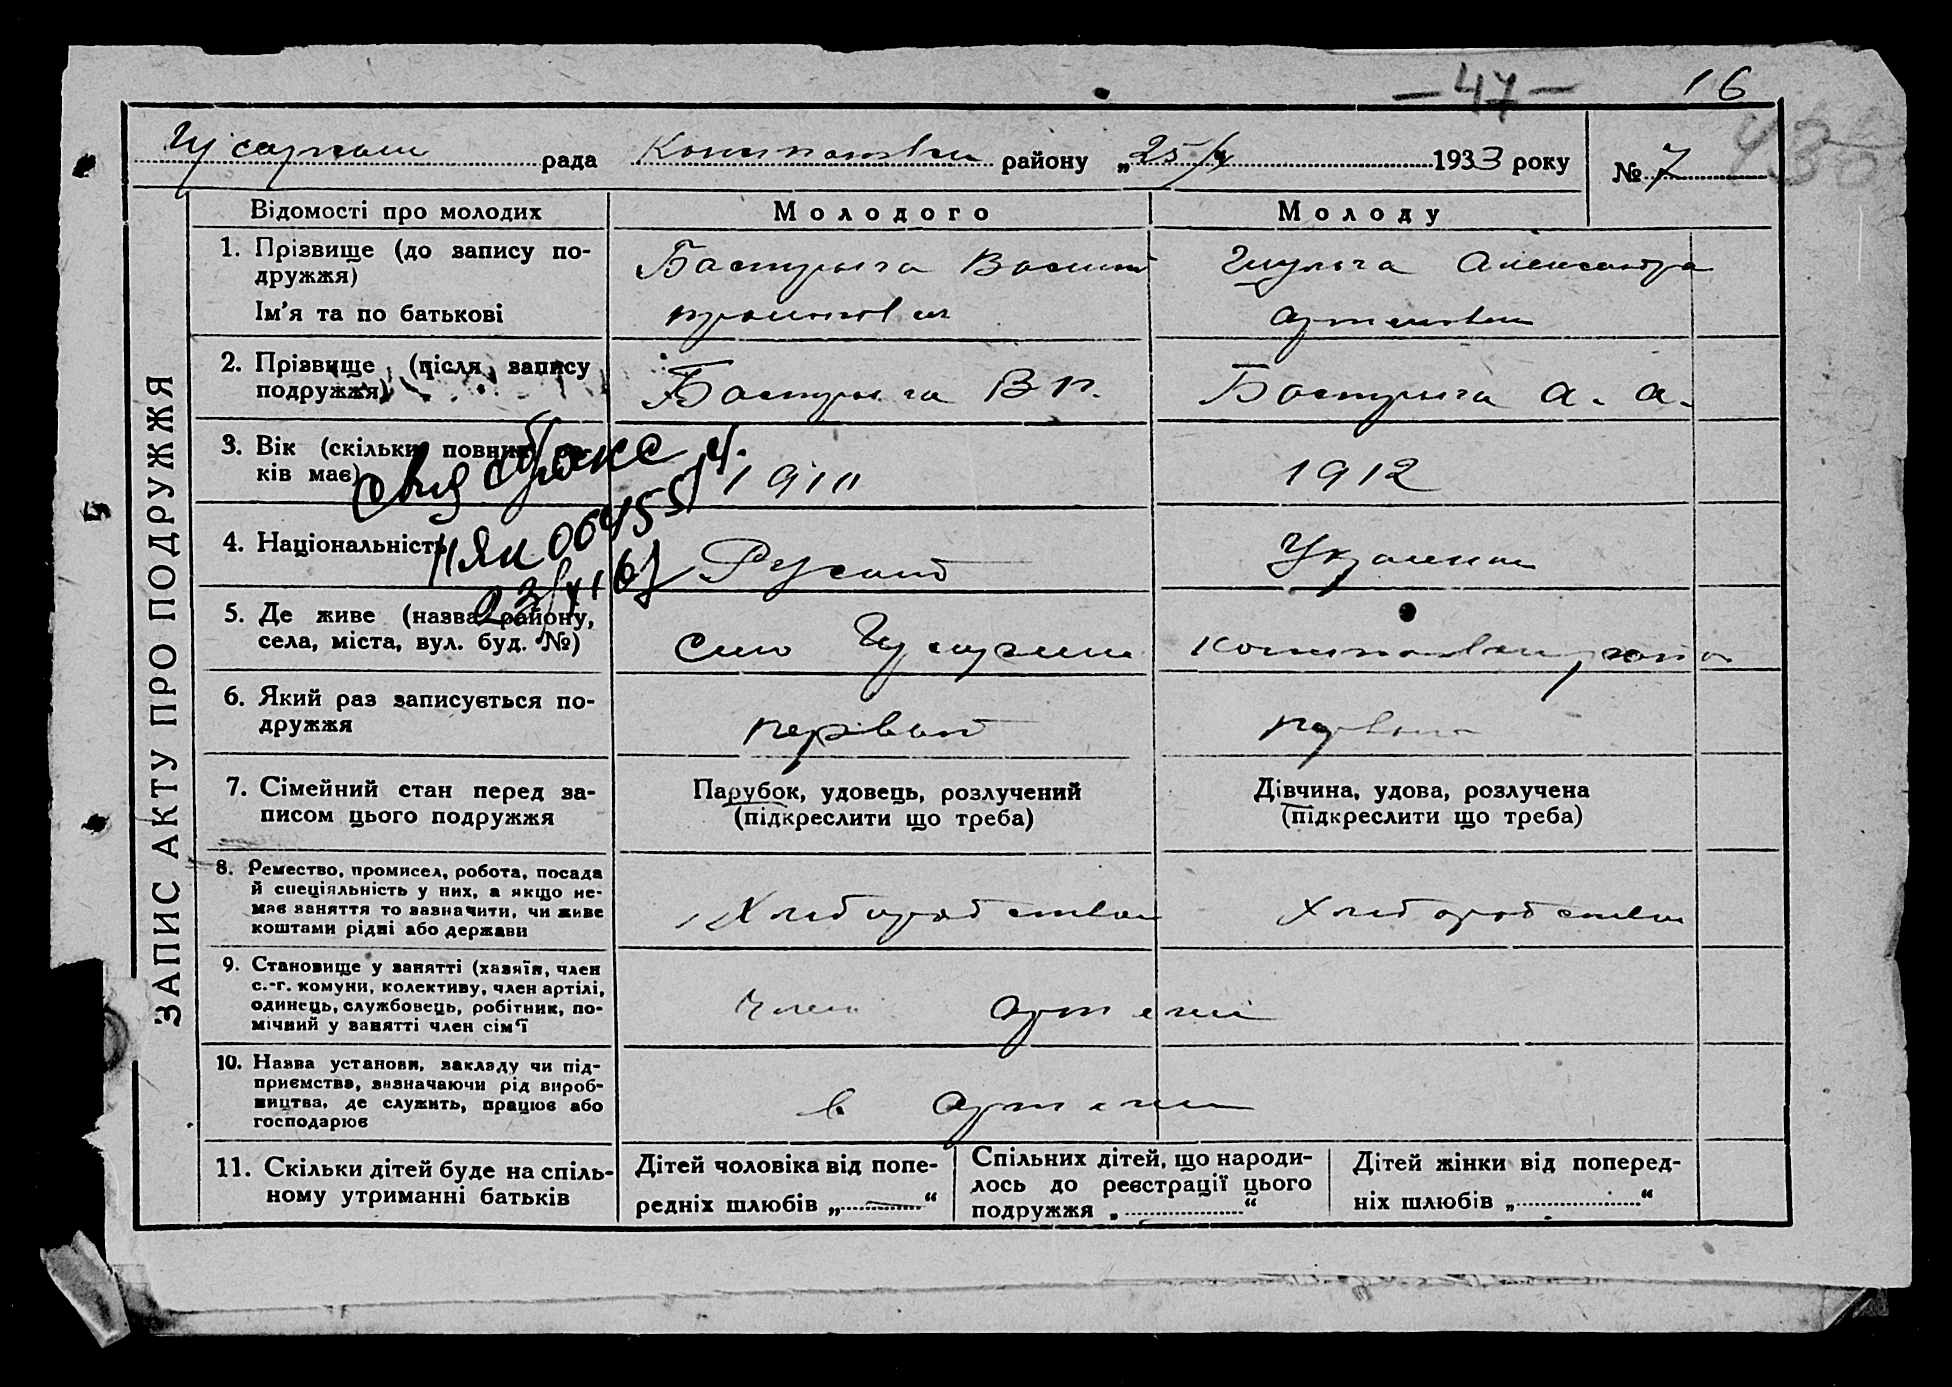 — 47 — 16
рада району „25/ 1933 року №7
ЗАПИС АКТУ ПРО ПОДРУЖЖЯ
Відомості про молодих Молодого Молоду
1. Прізвище (до запису по-
дружжя)
Ім'я та по батькові
Бастрыга
Александра
2. Прізвище (після запису
подружжя)
Бастрыга В П.
Бастрыга А. А.
3. Вік (скільки повних ро-
ків має)
1911
1912
4. Національність
Руский
Украинка
5. Де живе (назва району,
села, міста, вул. буд. №)
село
района
6. Який раз записується по-
дружжя
первый
7. Сімейний стан перед за-
писом цього подружжя
Парубок, удовець, розлучений
(підкреслити що треба)
Дівчина, удова, розлучена
(підкреслити що треба)
8. Ремество, промисел, робота, посада
й спеціяльність у них, а якщо не-
має заняття то зазначити, чи живе
коштами рідні або держави
9. Становище у занятті (хазяїн, член
с.-г. комуни, колективу, член артілі,
одинець, службовець, робітник, по-
мічний у занятті член сім'ї
член артели
10. Назва установи, закладу чи під-
приємства, зазначаючи рід вироб-
ництва, де служить, працює або
господарює
в артели
11. Скільки дітей буде на спіль-
ному утриманні батьків
Дітей чоловіка від попе-
редніх шлюбів „ “
Спільних дітей, що народи-
лось до реєстрації цього
подружжя „ “
Дітей жінки від поперед-
ніх шлюбів „ “